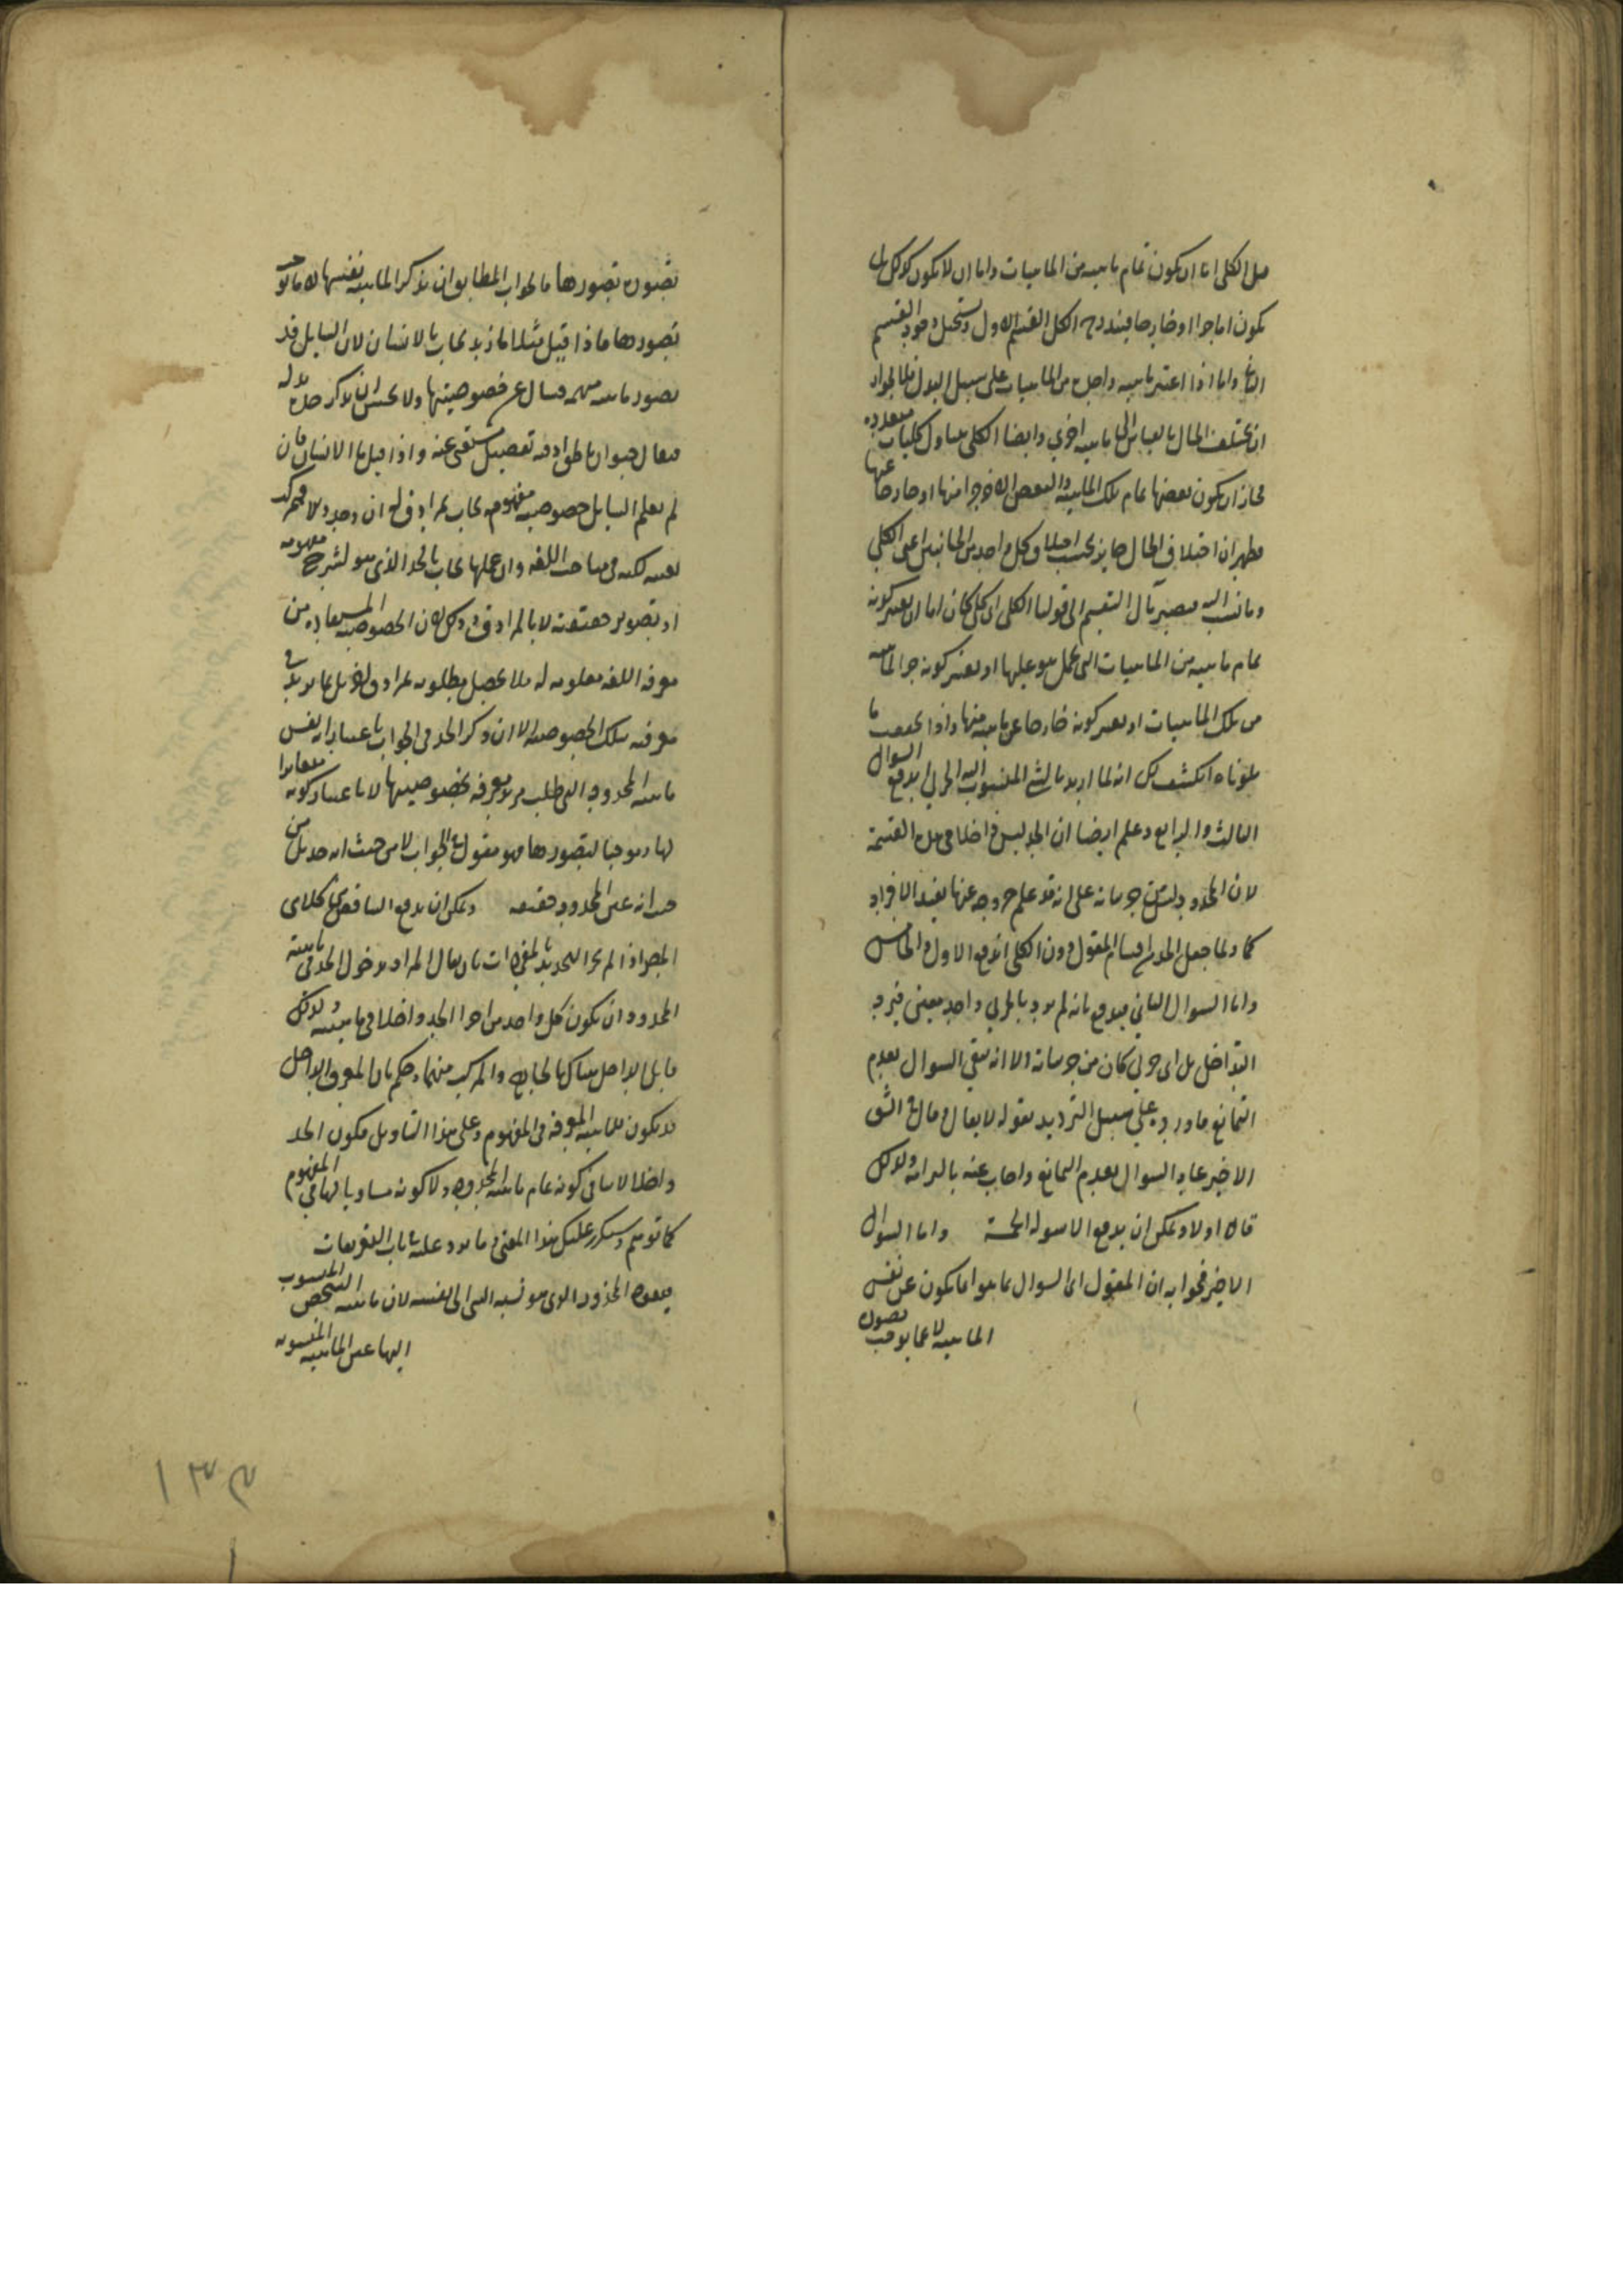 الكلى اما ان يكون تمام ماهيه من الماهيات واما ان لا يكون كذلك بل
يكون اما جزا او خارجا فيندرج الكل القسم الاول ويستحيل وجود القسم
واما اذا اعتبر ماهيه واحده من الماهيات على سبيل البدل فلجواز
ان يختلف الحال بالقياس الى ماهيه اخرى وايضا الكلى يتناول كليات متعدده
فجاز ان يكون بعضها تمام تلك الماهيه والبعض الاخر جزا منها او خارجا عنها
فظهر ان اختلاف الحال جايز بحسب اختلاف كل واحد من الجانبين اعنى الكلى
وما نسب اليه فيصير مآل التقسيم الى قولنا الكلى اى كلى كان اما ان يعتبر كونه
تمام ماهيه من الماهيات التى يحمل هو عليها او يعتبر كونه جزا لماهيه
من تلك الماهيات او يعتبر كونه خارجا عن ماهيه منها واذا تحققت ما
تلوناه انكشف لك انه لما اريد بالشى المنسوب اليه الجزئى اندفع السوال
الثالث والرابع وعلم ايضا ان الحد ليس داخلا فى هذه القسمة
لان المحدود ليس من جزئياته على انه قد علم خروجه عنها بقيد الافراد
كما ولما جعل الحد من اقسام المقول دون الكلى اندفع الاول والخامس
واما السوال الثانى فيدفع بانه لم يرد بالجزئى واحد معين فيرد
التداخل بل اى جزئى كان من جزئياته الا انه يبقى السوال بعدم
التمانع فاورده على سبيل الترديد بقوله لا يقال وقال فى الشق
الاخير عاد السوال بعدم التمانع واجاب عنه بالتزامه ولذلك
قال اولا ويمكن ان يدفع الاسوله الخمسة واما السوال
الاخير فجوابه ان المقول اى السوال بما هو اما يكون عن نفس
الماهيه لا عما يوجب تصوره
تصورها فالجواب المطابق ان يذكر الماهيه نفسها لا ما يوجب
تصورها فاذا قيل مثلا ما زيد يجاب بالانسان لان السايل قد
تصور ماهيه مبهمه فسال عن خصوصيتها ولا يحسن ان يذكر حده له
فيقال حيوان ناطق اذ فيه تفصيل مستغنى عنه واذا قيل ما الانسان فان
لم يعلم السايل خصوصيه مفهومه يجاب بمرادف له ان وجد والا فبمركب
لكنه من مباحث اللغه وان علمها يجاب بالحد الذى هو لشرح مفهومه
او تصوير حقيقته لا بالمرادف وذلك لان الخصوصيه المستفاده من
معرفه اللغه معلومه له فلا يحصل مطلوبه بمرادف اخر بل بما يوجب
معرفه تلك الخصوصيه الا ان ذكر الحد فى الجواب باعتبار انه نفس
ماهيه المحدود التى طلب معرفه خصوصيتها لا باعتبار كونه مغايرا
لها وموجبا لتصورها فهو مقول فى الجواب لا من حيث انه حد بل من
حيث انه عين المحدود حقيقه ويمكن ان يدفع التناقض بين كلامى
المصر اذا لم يجز التحديد بالمفردات بان يقال المراد بدخول الحد فى ماهية
المحدود ان يكون كل واحد من اجزا الحد داخلا فى ماهيته ولذلك
قابل الداخل هناك بالخارج والمركب منهما وحكم بان المعرف الداخل
قد يكون للماهيه المعرفه فى المفهوم وعلى هذا التاويل فكون الحد
داخلا لا ينافى كونه تمام ماهيه المحدود ولا كونه مساويا لها فى المفهوم
كما توهم وسيتكرر عليك هذا المعنى وما يرد عليه فى باب التعريفات
فيعود المحذور الذى هو نسبه الشى الى نفسه لان ماهيه الشخص المنسوب
اليها عين الماهيه المنسوبه
١٣٣